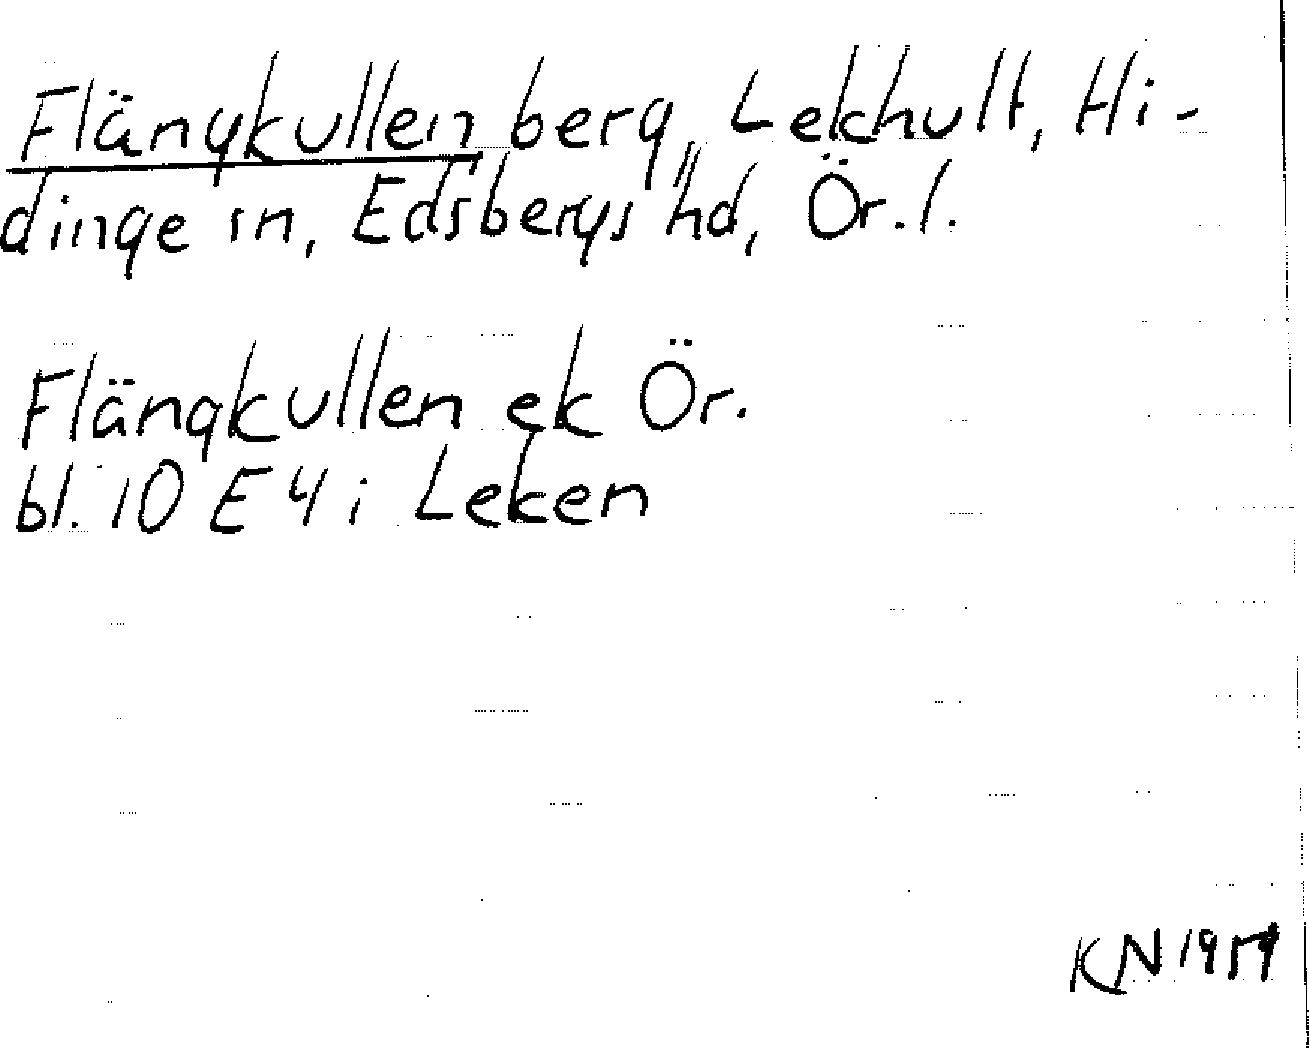 Flängkullen berg, Lekhult, Hi-
dinge sn, Edsbergs hd, Ör. l.
Flängkullen ek Ör.
bl. 10 E 4 i Leken
KN